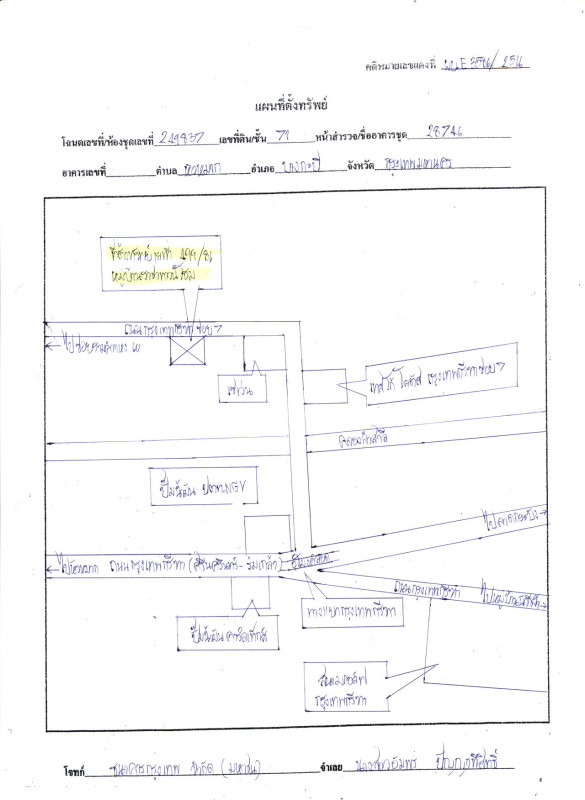 คดีหมายเลขแดงที่ ผบ.E 3516/2516
แผนที่ตั้งทรัพย์
โฉนดเลขที่/ห้องชุดเลขที่ 249837 เลขที่ดิน/ชั้น 71 หน้าสำรวจ/ชื่ออาคารชุด 28746
อาคารเลขที่ ตำบล หัวหมาก อำเภอ บางกะปิ จังหวัด กรุงเทพมหานคร
499/86
ถนนกรุงเทพกรีฑา ซอย 7
ไปซอยรามคำแหง 60
เซเว่น
เทสโก้ โลตัส กรุงเทพกรีฑาซอย 7
ปั๊มน้ำมัน ปตท.NGV
ไปลาดกระบัง
ไปหัวหมาก ถนนกรุงเทพกรีฑา (ศรีนครินทร์-ร่มเกล้า)
ถนนกรุงเทพกรีฑา
ไปหมู่บ้าน
ทางแยกกรุงเทพกรีฑา
ปั๊มน้ำมัน คาลเท็กซ์
สนามกอล์ฟ
กรุงเทพกรีฑา
โจทก์ ธนาคารกรุงเทพ จำกัด (มหาชน) จำเลย นางสาวอัมพร